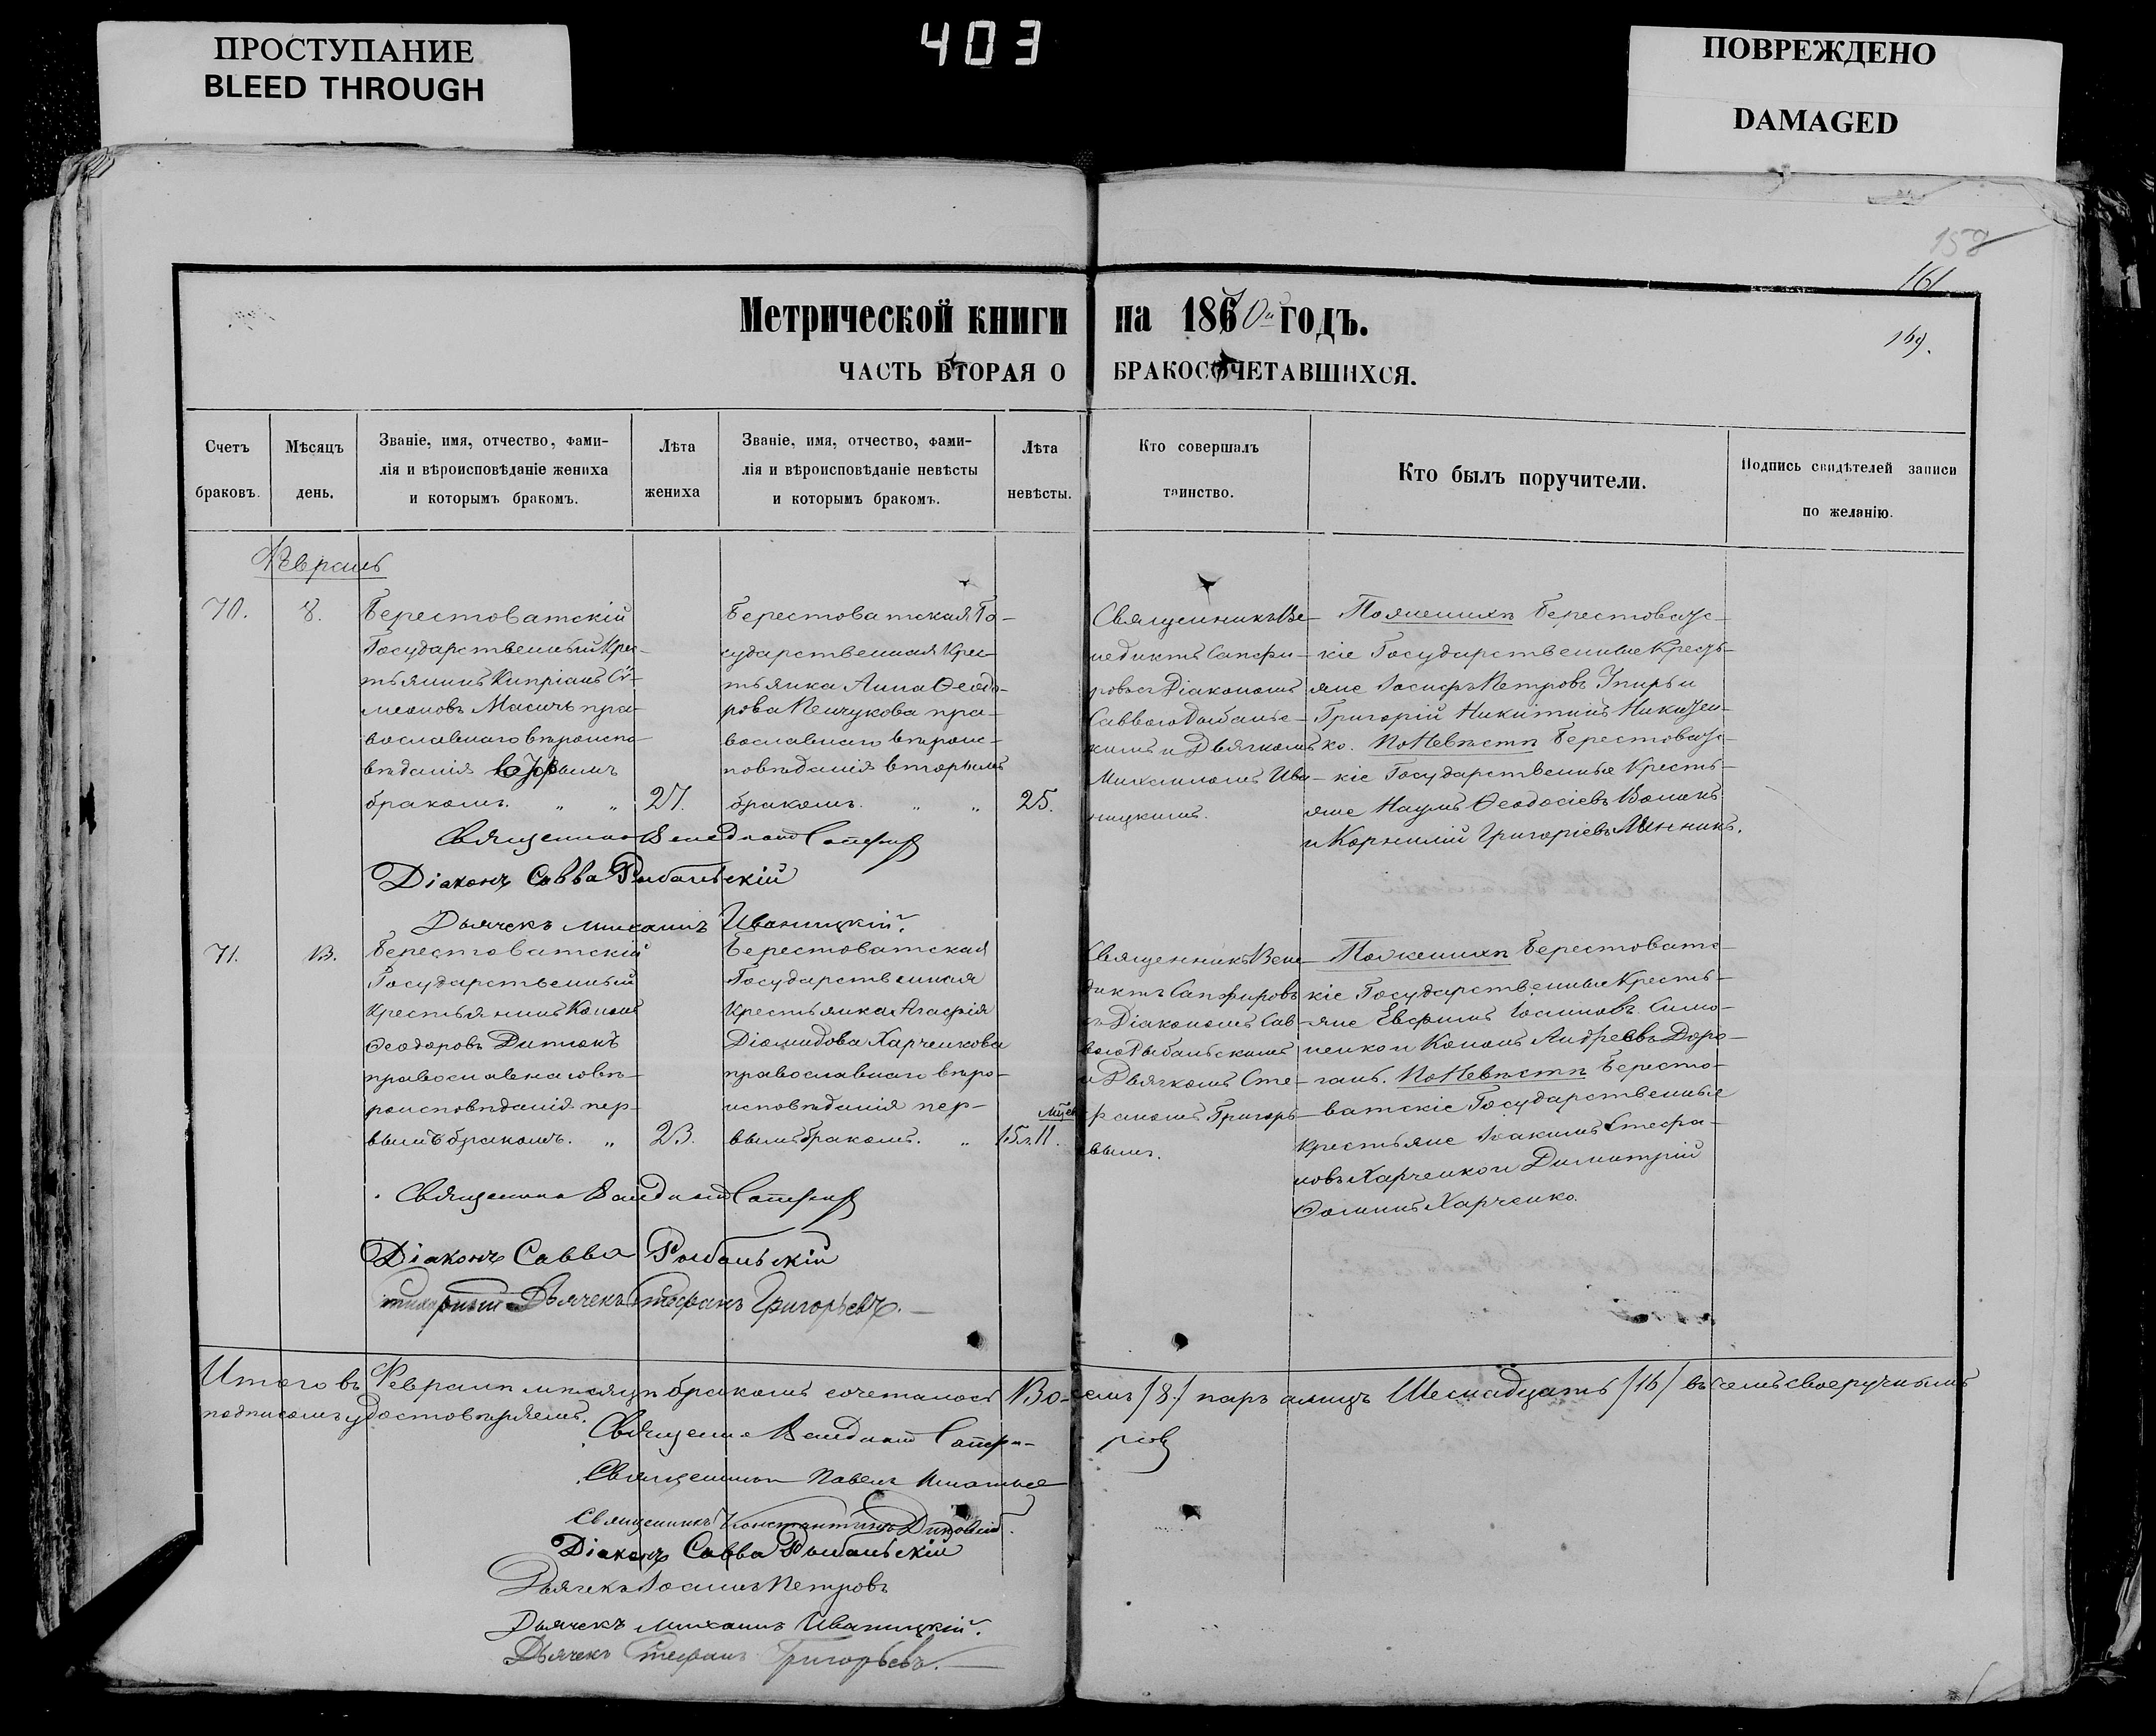 ПРОСТУПАНИЕ
BLEED THROUGH
403
ПОВРЕЖДЕНО
DAMAGED
158
161
169.
Метрической книги на 1870й годъ.
ЧАСТЬ ВТОРАЯ О БРАКОСОЧЕТАВШИХСЯ.
Счетъ браковъ.
Мѣсяцъ день.
Званіе, имя, отчество, фами-
лія и вѣроисповѣданіе жениха
и которымъ бракомъ.
Лѣта жениха
Званіе, имя, отчество, фами-
лія и вѣроисповѣданіе невѣсты
и которымъ бракомъ.
Лѣта невѣсты.
Кто совершалъ
таинство.
Кто былъ поручители.
Подпись свидѣтелей записи
по желанію.
Февраль
70.
8.
Берестоватскій
Государственный Крес-
тьянинъ Кипріанъ Си-
меоновъ Масичъ пра-
вославнаго вѣроиспо-
вѣданія вторымъ
бракомъ. „ „
27.
Берестоватская Го-
сударственная Крес-
тьянка Анна Ѳеодо-
рова Пенчукова пра-
вославнаго вѣроис-
повѣданія вторымъ
бракомъ. „ „
25.
Священникъ Ве-
недиктъ Сапфи-
ровъ съ Діакономъ
Саввою Рыбальс-
кимъ и Дьячкомъ
Михаиломъ Ива-
ницкимъ.
По женихѣ Берестоватс-
кіе Государственные Кресть-
яне Іосифъ Петровъ и
Григорій Никитинъ Никитен-
ко. По Невѣстѣ Берестоватс-
кіе Государственные Кресть-
яне Наумъ Ѳеодосіевъ
и Корнилій Григоріевъ Линникъ.
Священникъ Венедиктъ Сапфировъ
Діаконъ Савва Рыбальскій
Дьячекъ Михаилъ Иваницкій.
71.
13.
Берестоватскій
Государственный
Крестьянинъ Кононъ
Ѳеодоровъ Дитюкъ
православнаго вѣ-
роисповѣданія пер-
вымъ бракомъ. „
23.
Берестоватская
Государственная
Крестьянка Агафія
Діомидова Харченкова
православнаго вѣро-
исповѣданія пер-
вымъ бракомъ. „
мцев
15л.11.
Священникъ Вене-
диктъ Сапфировъ
съ Діакономъ Сав-
вою Рыбальскимъ
и Дьячкомъ Сте-
фаномъ Григорь-
евымъ.
По женихѣ Берестоватс-
кіе Государственные Кресть-
яне Евфимъ Іоанновъ Симо-
ненко и Кононъ Андреевъ Доро-
ганъ. По Невѣстѣ Бересто-
ватскіе Государственные
крестьяне Іоакимъ Стефа-
новъ Харченко и Димитрій
Ѳоминъ Харченко.
Священникъ Венедиктъ Сапфировъ
Діаконъ Савва Рыбальскій
Дьячекъ Стефанъ Григорьевъ.
Итого въ Февралѣ мѣсяцѣ бракомъ сочеталось Восемь /8/ паръ а лицъ Шеснадцать /16/ въ семъ своеручнымъ
подписомъ удостовѣряемъ.
Священникъ Венедиктъ Сапфировъ
Священникъ Павелъ
Священникъ Константинъ
Діаконъ Савва Рыбальскій
Дьячекъ Іоаннъ Петровъ
Дьячекъ Михаилъ Иваницкій.
Дьячекъ Стефанъ Григорьевъ.